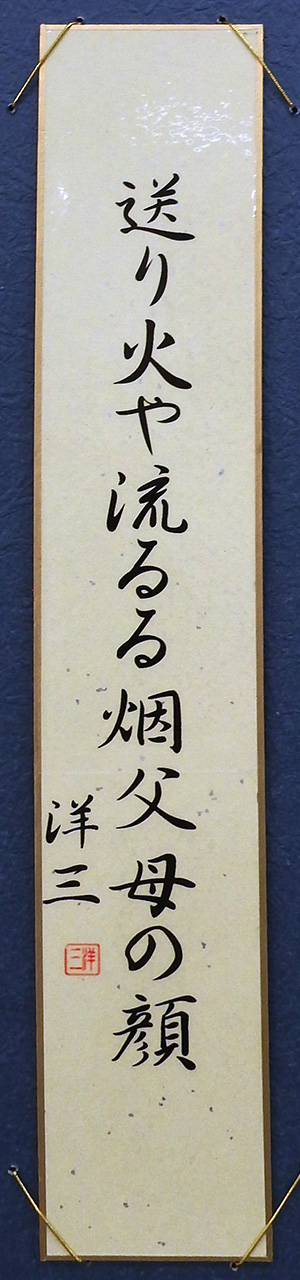 送り火や流るる烟父母の顔
洋三
洋三